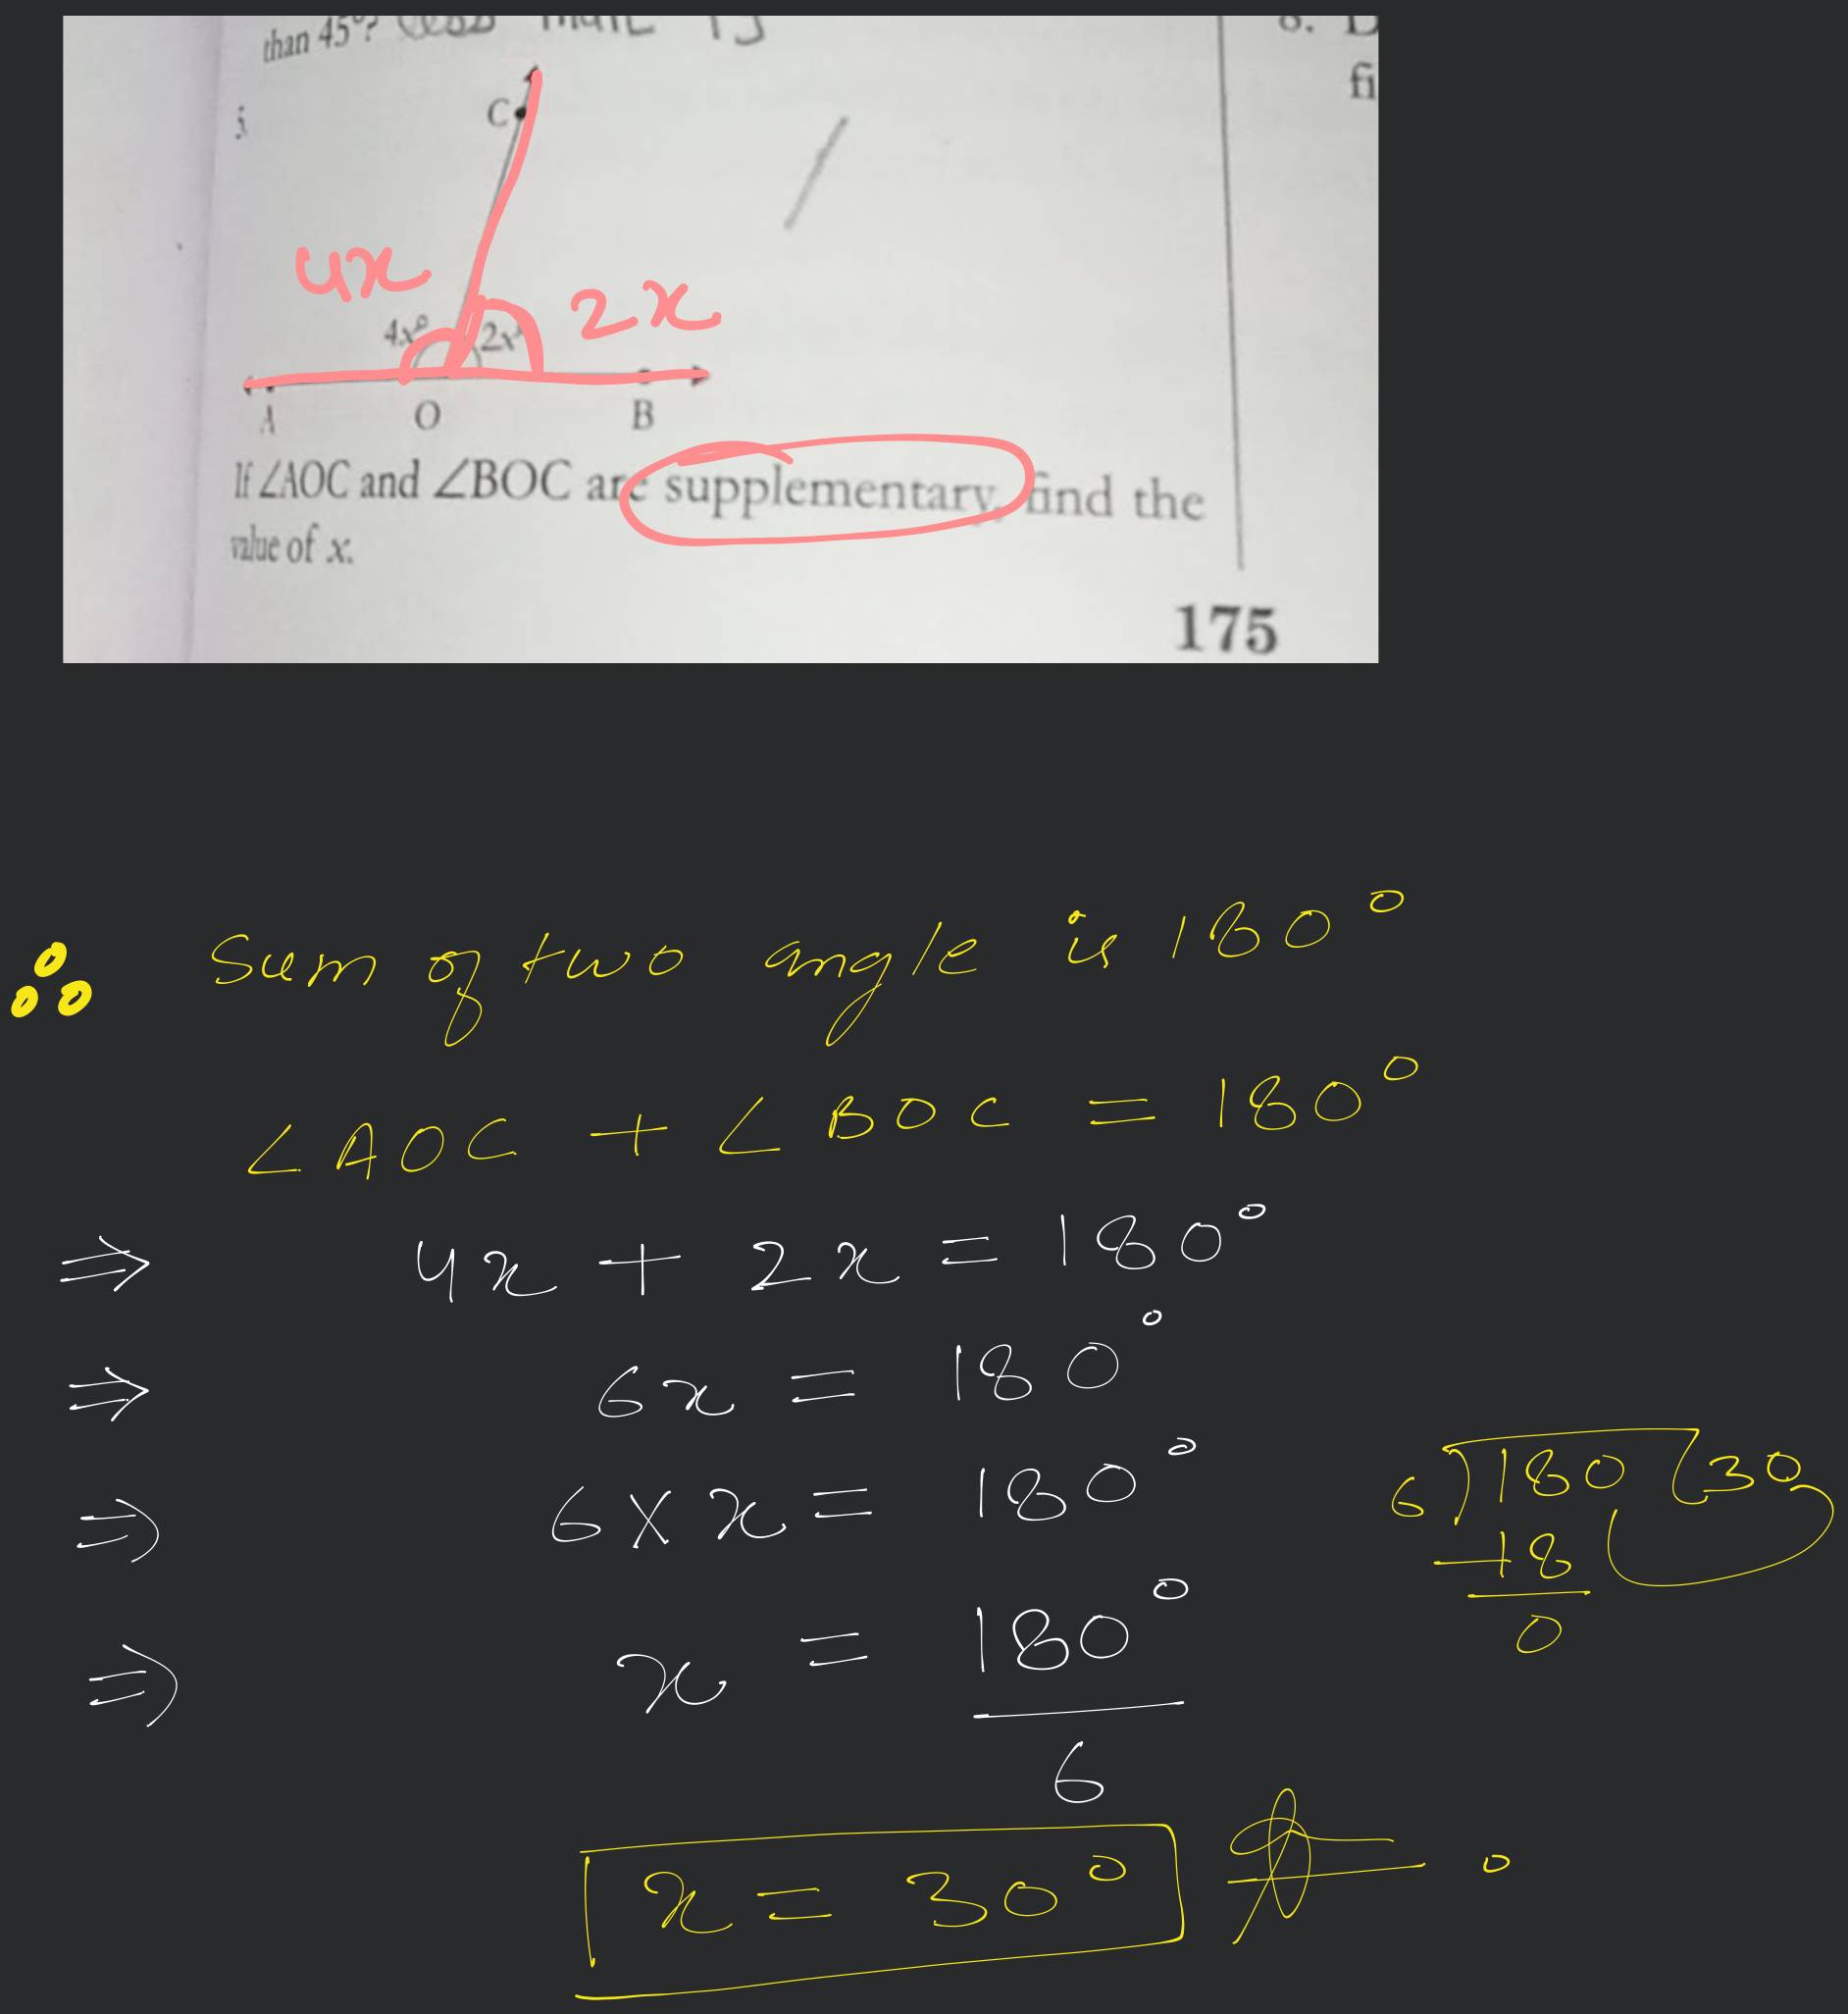 than 45°?
C
4x
2x
4x° 2x
A O B
If ∠AOC and ∠BOC are supplementary, find the
value of x.
8. D
fi
175
∴ Sum of two angle is 180°
∠AOC + ∠BOC = 180°
⇒ 4x + 2x = 180°
⇒ 6x = 180°
⇒ 6 × x = 180°
⇒ x = 180°
6
x = 30°
6)180(30
-18
0